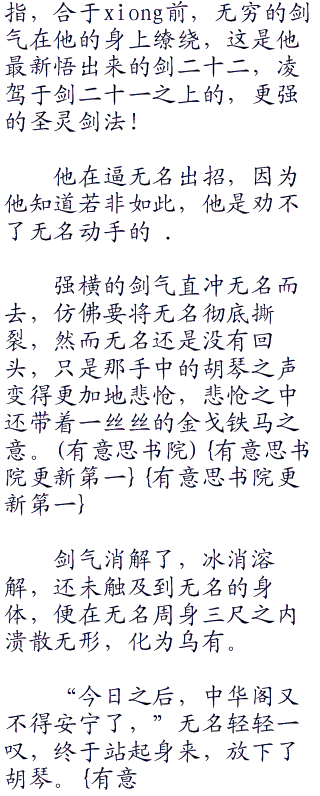 指，合于xiong前，无穷的剑
气在他的身上缭绕，这是他
最新悟出来的剑二十二，凌
驾于剑二十一之上的，更强
的圣灵剑法！
他在逼无名出招，因为
他知道若非如此，他是劝不
了无名动手的 .
强横的剑气直冲无名而
去，仿佛要将无名彻底撕
裂，然而无名还是没有回
头，只是那手中的胡琴之声
变得更加地悲怆，悲怆之中
还带着一丝丝的金戈铁马之
意。(有意思书院) {有意思书
院更新第一} {有意思书院更
新第一}
剑气消解了，冰消溶
解，还未触及到无名的身
体，便在无名周身三尺之内
溃散无形，化为乌有。
“今日之后，中华阁又
不得安宁了，”无名轻轻一
叹，终于站起身来，放下了
胡琴。{有意